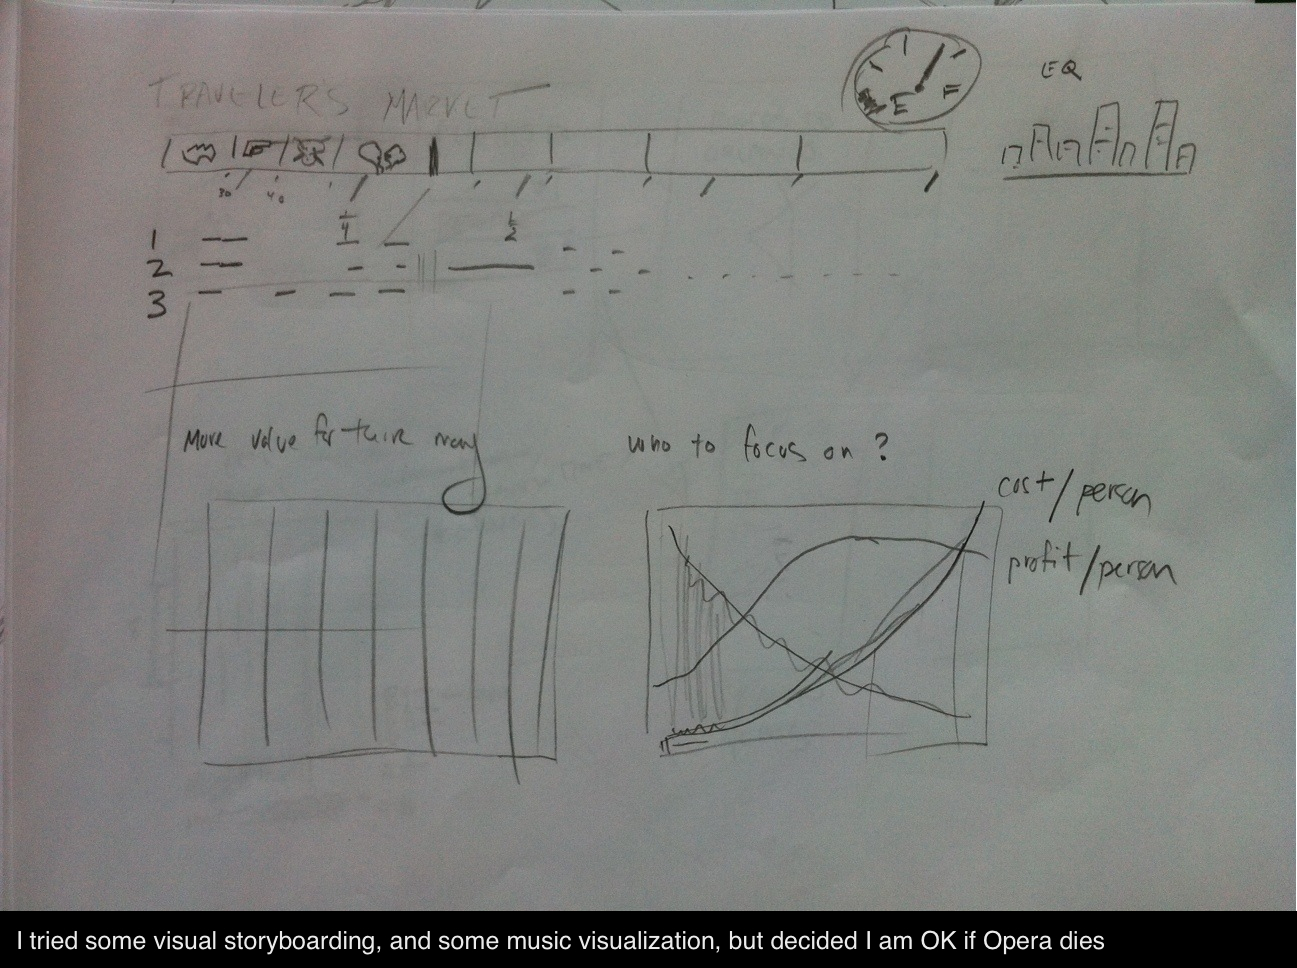 TRAVELER'S MARKET
E F
EQ
30 40
1/4
1/2
1
2
3
More value for their money
who to focus on?
cost/person
profit/person
I tried some visual storyboarding, and some music visualization, but decided I am OK if Opera dies